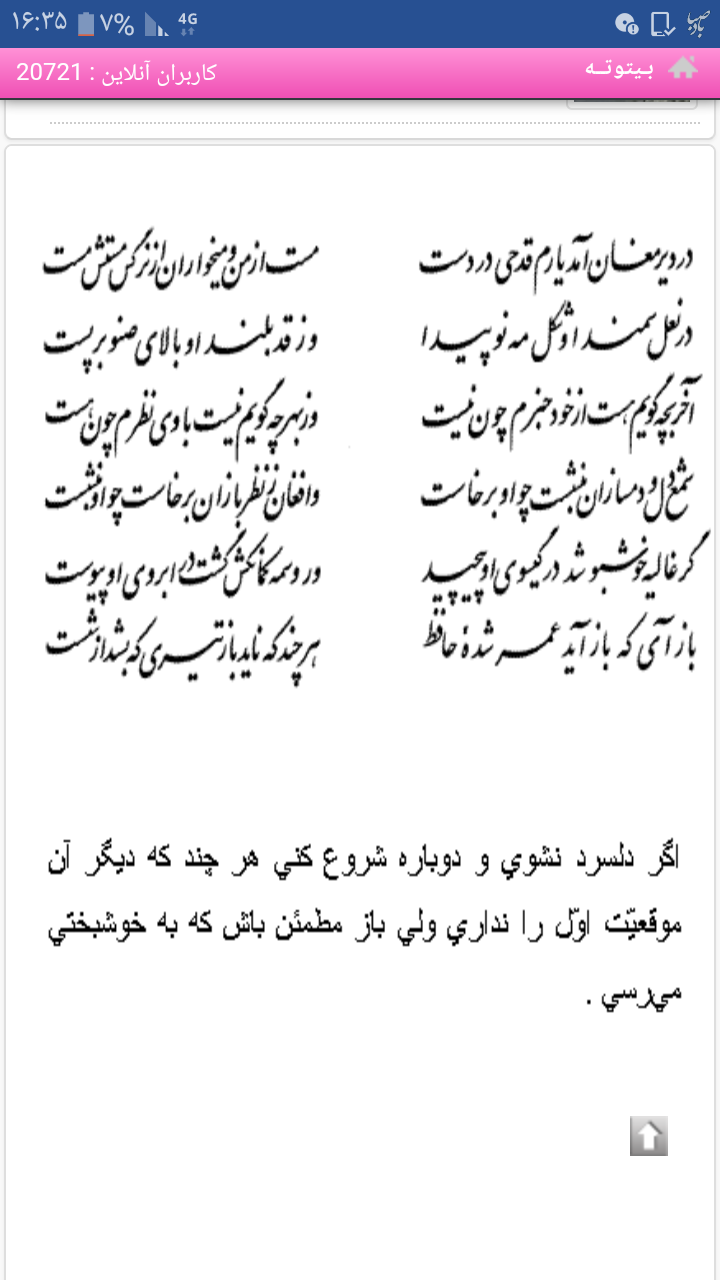 ۱۶:۳۵ ۷% 4G
بیتوته
کاربران آنلاین : 20721
در دیر مغان آمد یارم قدحی در دست مست از می و میخواران از نرگس مستش مست
در نعل سمند او شکل مه نو پیدا وز قد بلند او بالای صنوبر پست
آخر بچه گویم هست از خود خبرم چون نیست وز بهر چه گویم نیست با وی نظرم چون هست
شمع دل دمسازان بنشست چو او برخاست وافغان ز نظر بازان برخاست چو او بنشست
گر غالیه خوشبو شد در گیسوی او پیچید ور وسمه کمانکش گشت در ابروی او پیوست
باز آی که باز آید عمر شدهٔ حافظ هر چند که ناید باز تیری که بشد از شست
اگر دلسرد نشوي و دوباره شروع كني هر چند كه ديگر آن
موقعيّت اوّل را نداري ولي باز مطمئن باش كه به خوشبختي
مي‌رسي .